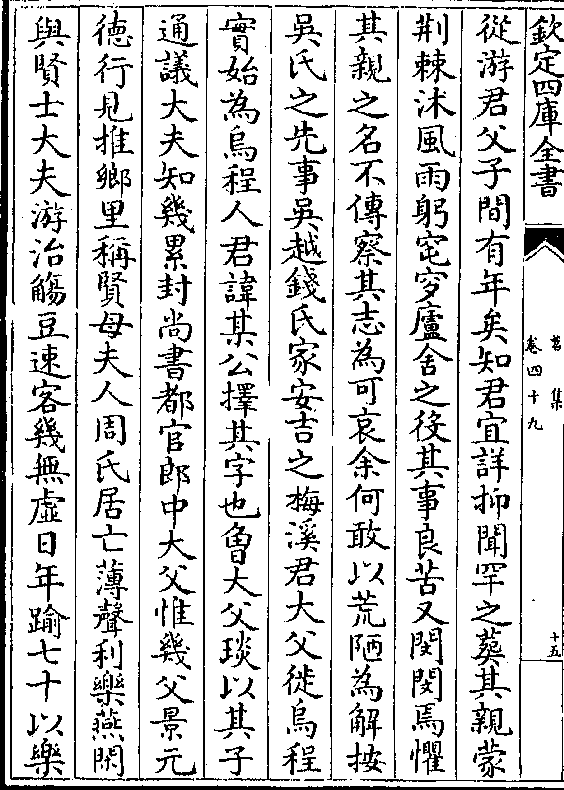 欽定四庫全書
苕集
卷四十九
十五
從游君父子間有年矣知君宜詳抑聞罕之葬其親蒙
荆棘沐風雨躬窀穸廬舍之役其事良苦又閔閔焉懼
其親之名不傳察其志為可哀余何敢以荒陋為解按
吳氏之先事吳越錢氏家安吉之梅溪君大父徙烏程
實始為烏程人君諱某公擇其字也曾大父琰以其子
通議大夫知幾累封尚書都官郎中大父惟幾父景元
徳行見推鄉里稱賢母夫人周氏居亡薄聲利樂燕閑
與賢士大夫游治觴豆速客幾無虛日年踰七十以樂